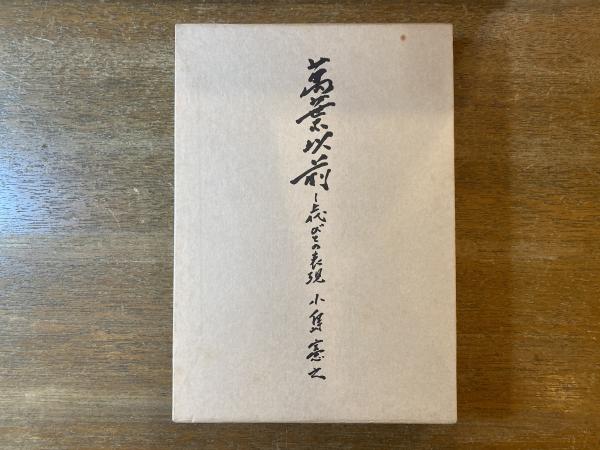 萬葉以前―上代びとの表現 小島憲之